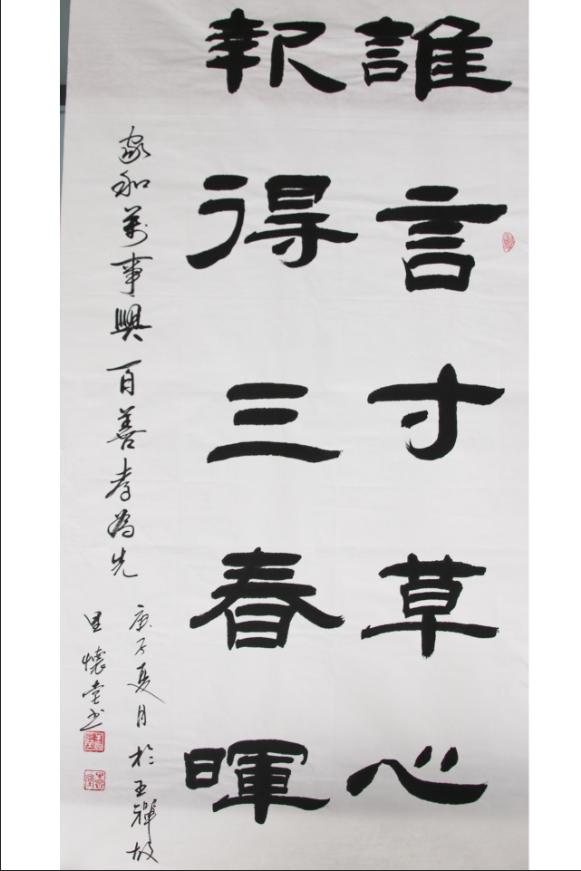 誰言寸草心
報得三春暉
家和萬事興百善孝為先
庚子夏月於王禪故
里懷堂书